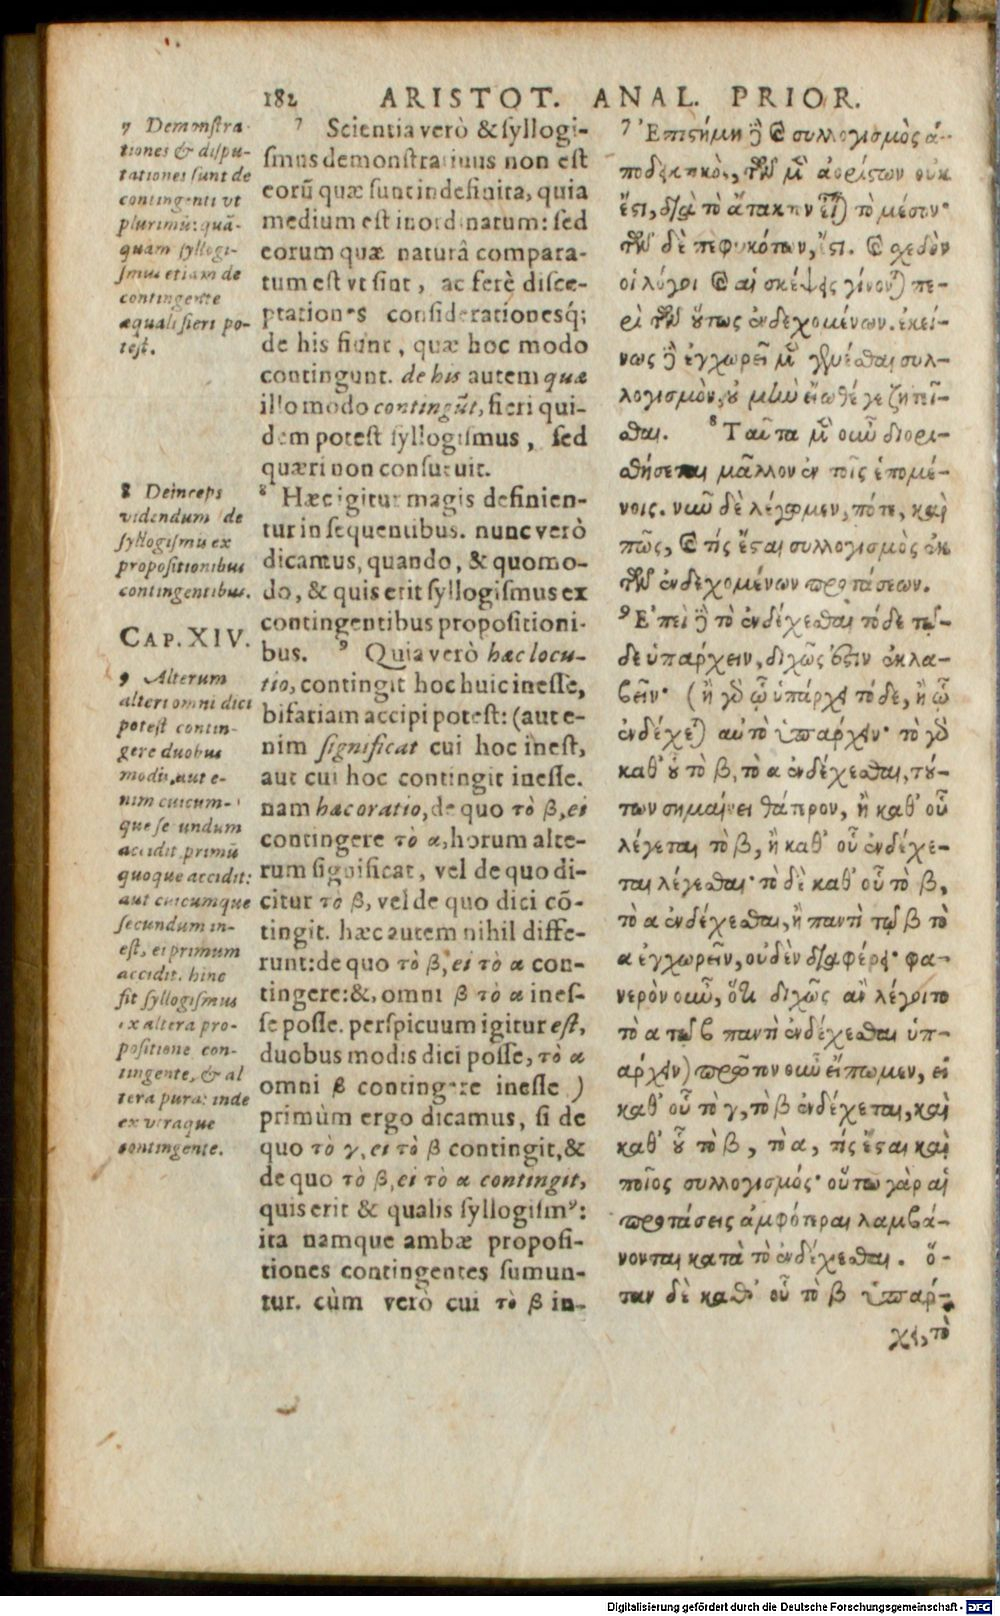 182 ARISTOT. ANAL. PRIOR.
7 Demonstra-
tiones & dispu-
tationes sunt de
contingenti vt
plurimũ: quã-
quam syllogi-
smus etiam de
contingente
æquali fieri po-
test.
8 Deinceps
videndum de
syllogismis ex
propositionibus
contingentibus.
CAP. XIV.
9 Alterum
alteri omni dici
potest contin-
gere duobus
modis, aut e-
nim cuicum-
que secundum
accidit, primũ
quoque accidit:
aut cuicumque
secundum in-
est, ei primum
accidit. hinc
fit syllogismus
ex altera pro-
positione con-
tingente, & al
tera pura: inde
ex vtraque
contingente.
7 Scientia verò & syllogi-
smus demonstratiuus non est
eorũ quæ sunt indefinita, quia
medium est inordinatum: sed
eorum quæ naturâ compara-
tum est vt sint, ac ferè disce-
ptationes considerationesq́;
de his fiunt, quæ hoc modo
contingunt. de his autem quæ
illo modo contingũt, fieri qui-
dem potest syllogismus, sed
quæri non consueuit.
8 Hæc igitur magis definien-
tur in sequentibus. nunc verò
dicamus, quando, & quomo-
do, & quis erit syllogismus ex
contingentibus propositioni-
bus. 9 Quia verò hæc locu-
tio, contingit hoc huic inesse,
bifariam accipi potest: (aut e-
nim significat cui hoc inest,
aut cui hoc contingit inesse.
nam hæc oratio, de quo τὸ β, ei
contingere τὸ α, horum alte-
rum significat, vel de quo di-
citur τὸ β, vel de quo dici cō-
tingit. hæc autem nihil diffe-
runt: de quo τὸ β, ei τὸ α con-
tingere: &, omni β τὸ α ines-
se posse. perspicuum igitur est,
duobus modis dici posse, τὸ α
omni β contingere inesse )
primùm ergo dicamus, si de
quo τὸ γ, ei τὸ β contingit, &
de quo τὸ β, ei τὸ α contingit,
quis erit & qualis syllogismꝰ:
ita namque ambæ proposi-
tiones contingentes sumun-
tur. cùm verò cui τὸ β in-
7 Ἐπιστήμη δὲ καὶ συλλογισμὸς ἀ-
ποδεικτικὸς, τῶν μὲν ἀορίστων οὐκ
ἔστι, διὰ τὸ ἄτακτον εἶναι τὸ μέσον·
τῶν δὲ πεφυκότων, ἔστι. καὶ σχεδὸν
οἱ λόγοι καὶ αἱ σκέψεις γίνονται πε-
ρὶ τῶν οὕτως ἐνδεχομένων. ἐκεί-
νως δὲ ἐγχωρεῖ μὲν γενέσθαι συλ-
λογισμὸν, οὐ μὴν εἴωθέ γε ζητεῖ-
σθαι. 8 Ταῦτα μὲν οὖν διορι-
σθήσεται μᾶλλον ἐν τοῖς ἑπομέ-
νοις. νῦν δὲ λέγωμεν, πότε, καὶ
πῶς, καὶ τίς ἔσται συλλογισμὸς ἐκ
τῶν ἐνδεχομένων προτάσεων.
9 Ἐπεὶ δὲ τὸ ἐνδέχεσθαι τόδε τῷ-
δε ὑπάρχειν, διχῶς ἔστιν ἐκλα-
βεῖν· (ἢ γὰρ ᾧ ὑπάρχει τόδε, ἢ ᾧ
ἐνδέχεται αὐτὸ ὑπάρχειν· τὸ γὰρ
καθ' οὗ τὸ β, τὸ α ἐνδέχεσθαι, τού-
των σημαίνει θάτερον, ἢ καθ' οὗ
λέγεται τὸ β, ἢ καθ' οὗ ἐνδέχε-
ται λέγεσθαι· τὸ δὲ καθ' οὗ τὸ β,
τὸ α ἐνδέχεσθαι, ἢ παντὶ τῷ β τὸ
α ἐγχωρεῖν, οὐδὲν διαφέρει· φα-
νερὸν οὖν, ὅτι διχῶς ἂν λέγοιτο
τὸ α τῷ β παντὶ ἐνδέχεσθαι ὑπ-
άρχειν) πρῶτον οὖν εἴπωμεν, εἰ
καθ' οὗ τὸ γ, τὸ β ἐνδέχεται, καὶ
καθ' οὗ τὸ β, τὸ α, τίς ἔσται καὶ
ποῖος συλλογισμός· οὕτω γὰρ αἱ
προτάσεις ἀμφότεραι λαμβά-
νονται κατὰ τὸ ἐνδέχεσθαι. ὅ-
ταν δὲ καθ' οὗ τὸ β ὑπάρ-
χει, τὸ
Digitalisierung gefördert durch die Deutsche Forschungsgemeinschaft - DFG